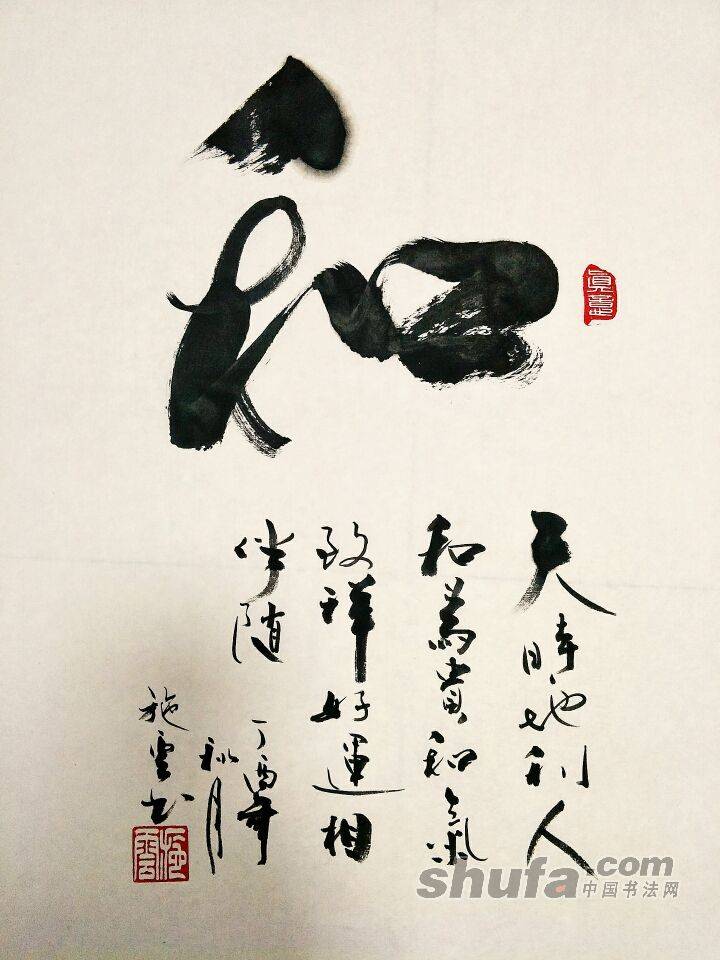 和
天時地利人
和為貴和氣
致祥好運相
伴随
丁酉年
秋月
施雲书
施雲
shufa.com
中国书法网